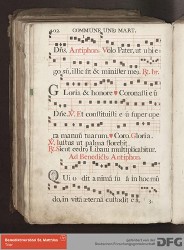 COMMUNE UNIJ MART.
Dñs. Antiphon. Volo Pater, ut ubi e-
go sũ, illic sit & minister meus. Ps. br.
Gloria & honore ℣ Coronasti e ũ
Dñe. ℣. Et constituisti eũ super ope
ra manuum tuarum. Coro. Gloria.
℣. Iustus ut palma florebit.
℟. Sicut cedrus Libani multiplicabitur.
Ad Benedictus Antiphon.
Qui odit animã suã in hoc mũ
do, in vitã æternã custodit eã.
Benediktinerabtei St. Matthias
Trier
DFG